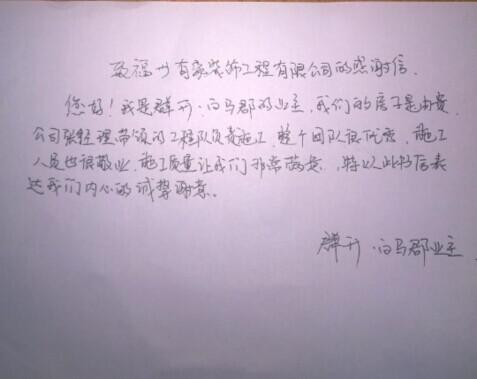 致福州有家装饰工程有限公司的感谢信.
您好！我是群升·白马郡的业主，我们的房子是由贵
公司张经理带领的工程队负责施工，整个团队很优秀，施工
人员也很敬业，施工质量让我们非常满意，特以此书信表
达我们内心的诚挚谢意。
群升·白马郡业主